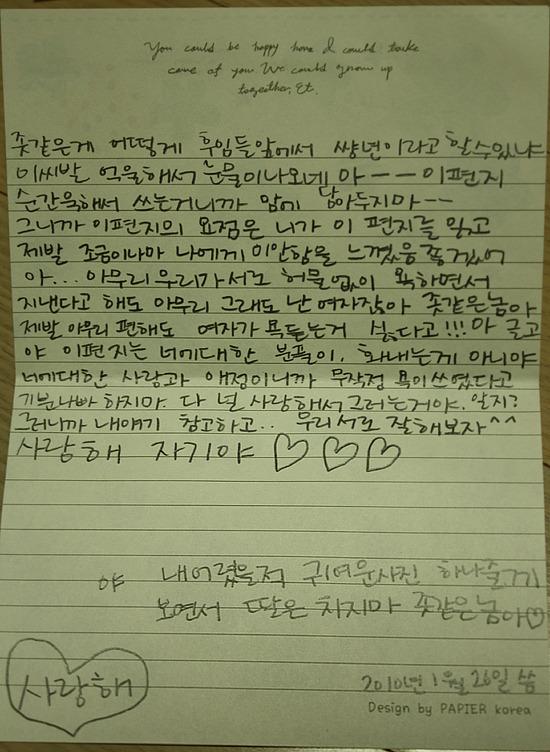 You could be happy here I could take
care of you We could grow up
together, Et.
좆같은게 어떻게 후임들앞에서 썅년이라고 할수있냐
이씨발 억울해서 눈물이나오네 아ㅡㅡ 이편지
순간욱해서 쓰는거니까 맘에 담아두지마--
그니까 이편지의 요점은 니가 이 편지를 읽고
제발 조금이나마 나에게 미안함을 느꼈음 좋겠어
아... 아무리우리가서로 허물없이 욕하면서
지낸다고 해도 아무리 그래도 난 여자잖아 좆같은놈아
제발 아무리 편해도 여자가 욕듣는거 싫다고!!! 아 글고
야 이편지는 너에대한 분풀이, 화내는게 아니야
너에대한 사랑과 애정이니까 무작정 욕이쓰였다고
기분나빠 하지마. 다 널 사랑해서 그러는거야. 알지?
그러니까 내얘기 참고하고.. 우리서로 잘해보자^^
사랑해 자기야 ♡♡♡
야 내어렸을적 귀여운사진 하나줄게
보면서 딸은 치지마 좆같은놈아♡
사랑해
2010년 1월 26일 씀
Design by PAPIER korea